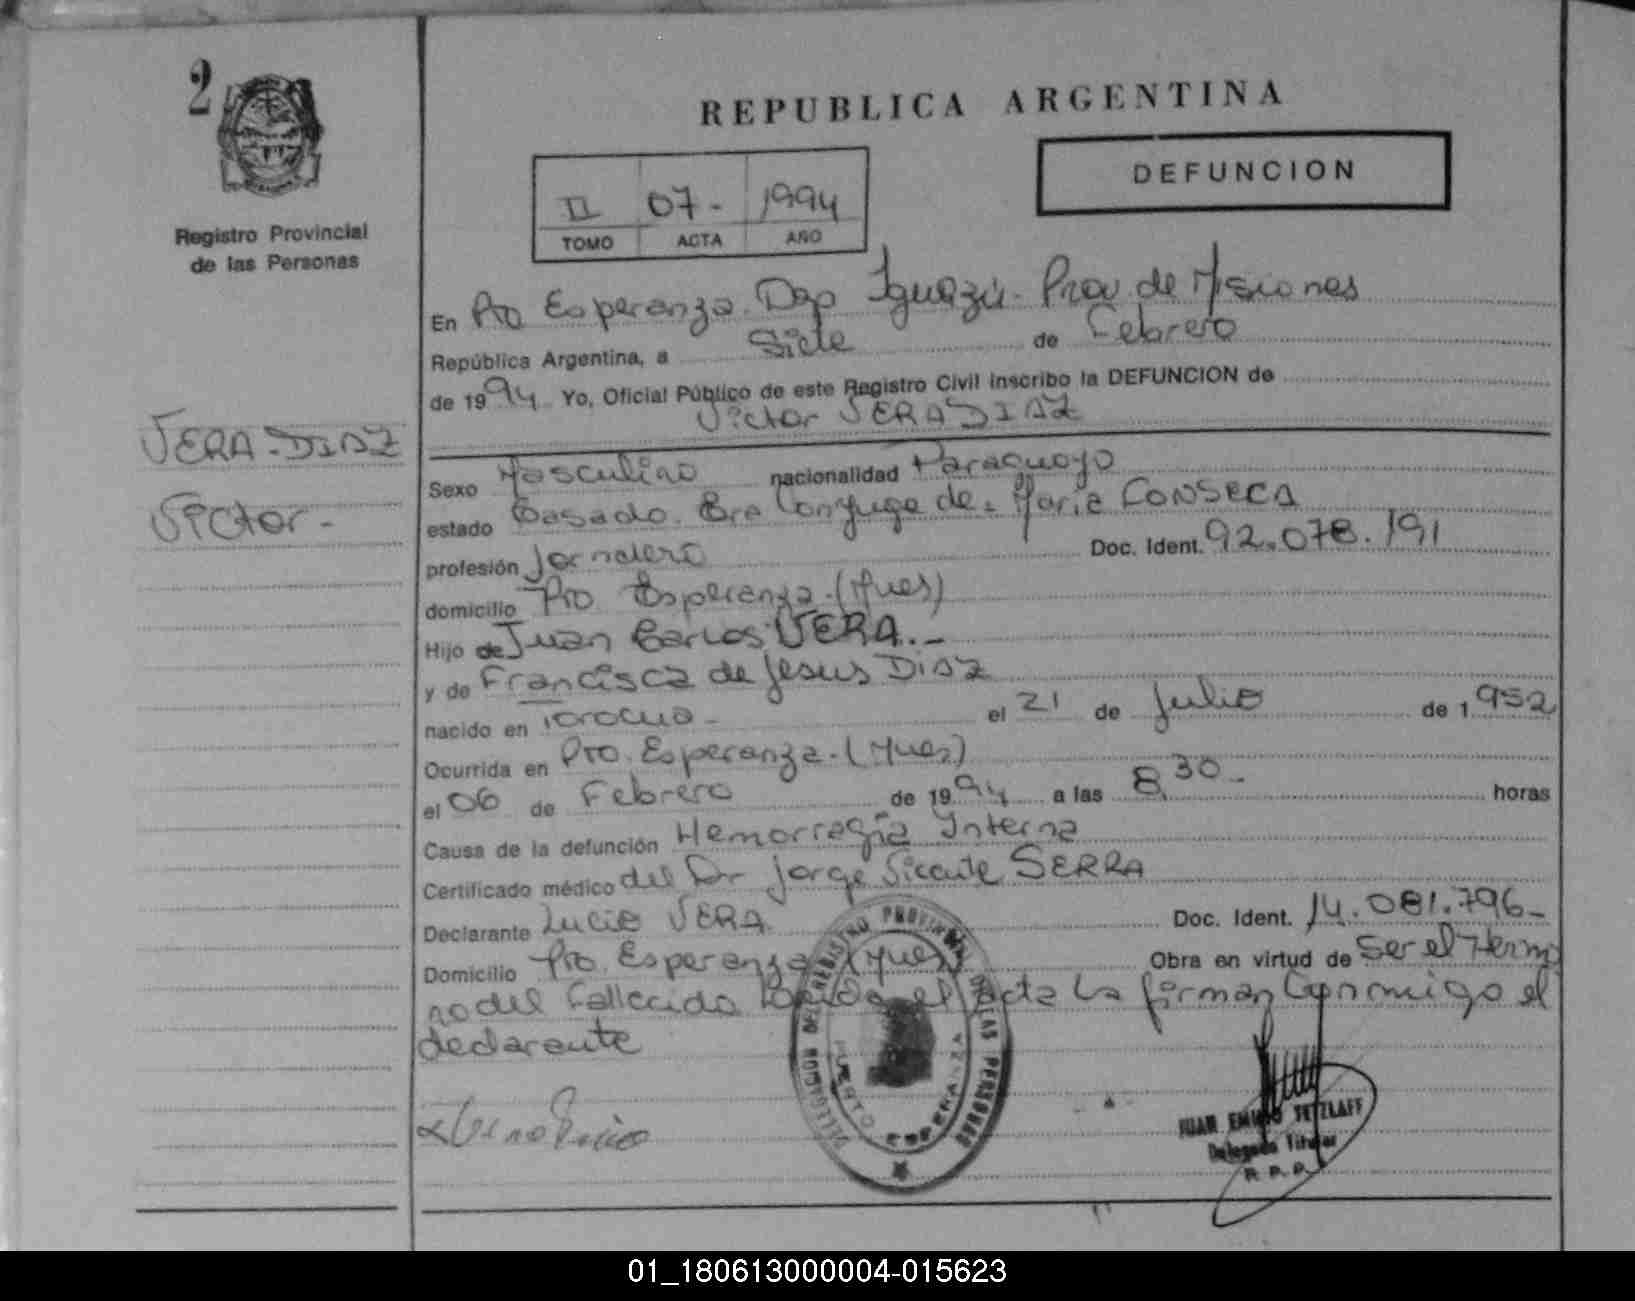 2
Registro Provincial
de las Personas
VERA-DIAZ
Victor-
REPUBLICA ARGENTINA
DEFUNCION
II 07- 1994
TOMO ACTA AÑO
En Pto Esperanza. Dep Iguazú. Prov de Misiones
República Argentina, a Siete de Febrero
de 1994 Yo, Oficial Público de este Registro Civil inscribo la DEFUNCION de
Victor VERA DIAZ
Sexo Masculino nacionalidad Paraguayo
estado Casado. Era Conyuge de. Maria FONSECA
profesión Jornalero Doc. Ident. 92.078.191
domicilio Pto Esperanza-(Mnes)
Hijo de Juan Carlos VERA.-
y de Francisca de Jesus DIAZ
nacido en el 21 de Julio de 1952
Ocurrida en Pto. Esperanza-(Mnes)
el 06 de Febrero de 1994 a las 8,30- horas
Causa de la defunción Hemorragia Interna
Certificado médico del Dr Jorge Vicente SERRA
Declarante Lucio VERA Doc. Ident. 14.081.796-
Domicilio Pto. Esperanza (Mnes) Obra en virtud de Ser el Herma
no del Fallecido Leida el acta la firman Conmigo el
declarante
DEL REGISTRO PROVINCIAL DE LAS PERSONAS
PUERTO ESPERANZA
JUAN EMILIO TETZLAFF
Delegado Titular
R. P. P.
01_180613000004-015623